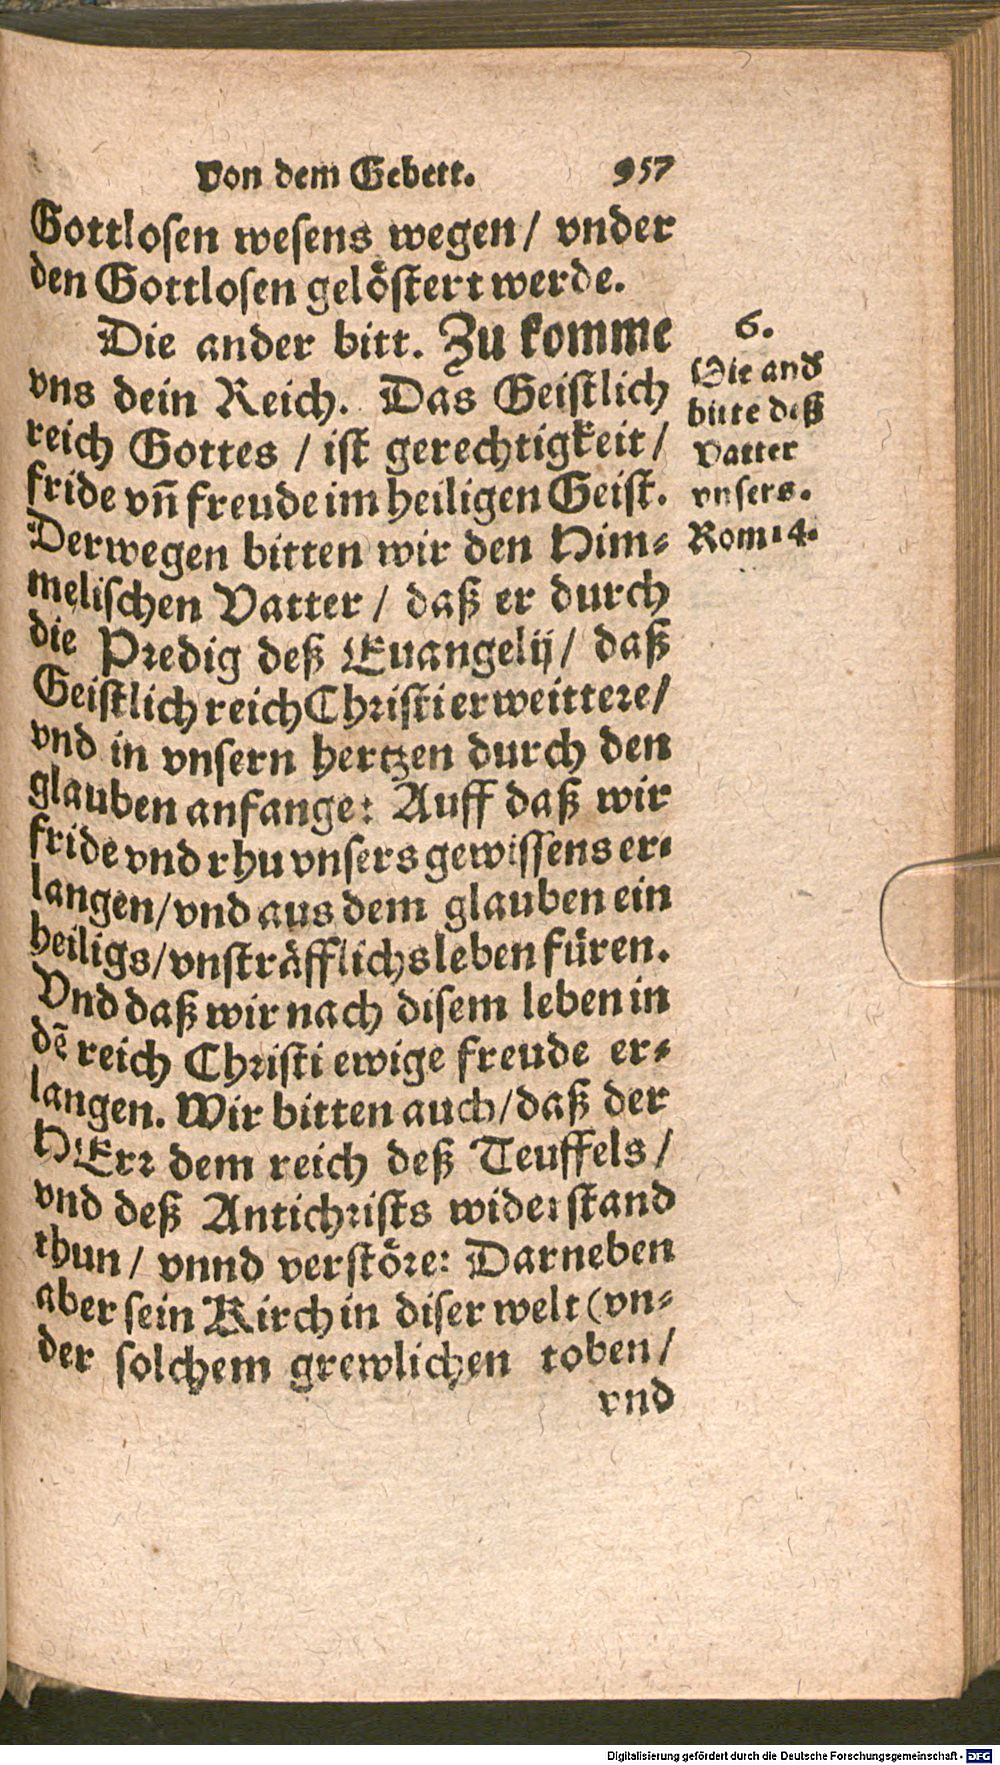 Von dem Gebett. 957
Gottlosen wesens wegen / vnder
den Gottlosen gelöstert werde.
Die ander bitt. Zu komme
vns dein Reich. Das Geistlich
reich Gottes / ist gerechtigkeit /
fride vn̄ freude im heiligen Geist.
Derwegen bitten wir den Him⸗
melischen Vatter / daß er durch
die Predig deß Euangelij / daß
Geistlich reich Christi erweittere /
vnd in vnsern hertzen durch den
glauben anfange: Auff daß wir
fride vnd rhu vnsers gewissens er⸗
langen / vnd aus dem glauben ein
heiligs / vnsträfflichs leben füren.
Vnd daß wir nach disem leben in
dē reich Christi ewige freude er⸗
langen. Wir bitten auch / daß der
HErr dem reich deß Teuffels /
vnd deß Antichrists widerstand
thun / vnnd verstöre: Darneben
aber sein Kirch in diser welt (vn⸗
der solchem grewlichen toben /
vnd
6.
Die and
bitte deß
Vatter
vnsers.
Rom 14.
Digitalisierung gefördert durch die Deutsche Forschungsgemeinschaft - DFG